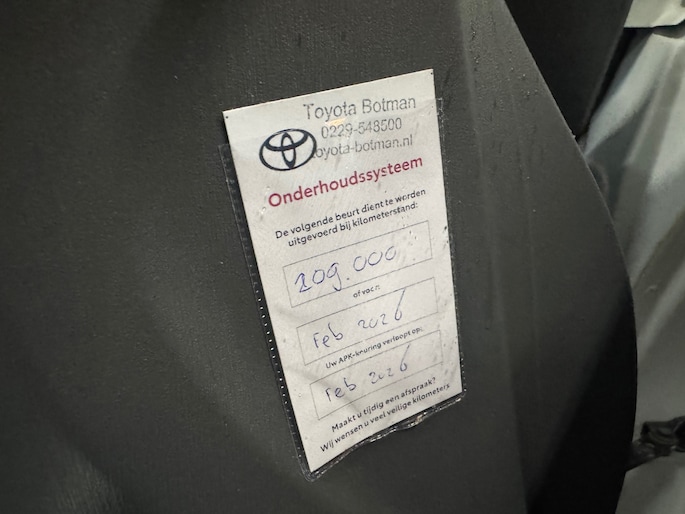 Toyota Botman
0229-548500
toyota-botman.nl
Onderhoudssysteem
De volgende beurt dient te worden
uitgevoerd bij kilometerstand:
209.000
of voor:
Feb 2026
Uw APK-keuring verloopt op:
Feb 2026
Maakt u tijdig een afspraak?
Wij wensen u veel veilige kilometers